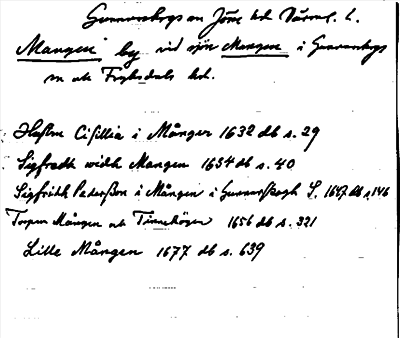 Gunnarskogs sn Jösse hd Värml. l.
Mangen by vid sjön Mangen i Gunnarskogs
sn och Fryksdals hd.
Hustru Cisillia i Månger 1632 db s. 29
Sigfredh widh Mangen 1654 db s. 40
Sigfridh Pederßon i Mången i Gunnarskogh S. 1647 db s. 146
Torpen Mången och Timmhögen 1656 db s. 321
Lille Mången 1677 db s. 639